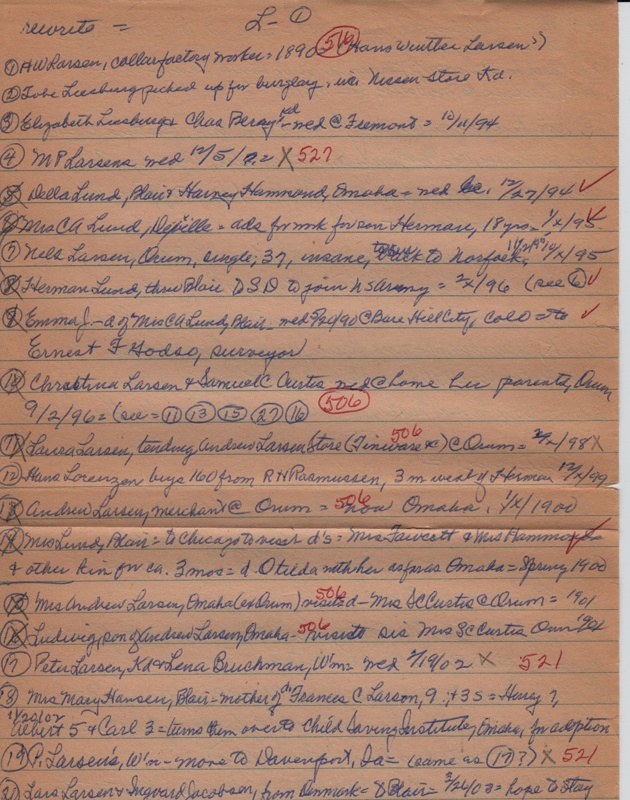 rewrite = L-①
① HW Larsen, collar factory worker = 1890 = 506 (Hans Winther Larsen?)
② Tobe Liesburg picked up for burglary, in Nissen Store Kd.
③ Elizabeth Liesburg & Chas Beray Kd - wed @ Fremont = 12/11/94
④ MP Larsens wed 12/5/22 X 527
⑤ Della Lund, Blair & Harvey Hammond, Omaha = wed 12/27/94 ✓
⑥ Mrs CA Lund, DeSville = ads for work for son Herman, 18 yrs = 1/x/95 ✓
⑦ Nels Larsen, Orum, single, 37, insane, back to Norfolk, /x/95
⑧ Herman Lund, thru Blair to join army = 2/x/96 (see ⑥) ✓
⑨ Emma J - d of Mrs CA Lund, Blair - wed @ Bare Hill City, Colo = to ✓
Ernest F Godso, surveyor
⑩ Christina Larsen & Samuel C Curtis wed @ home her parents, Orum
9/2/96 = (see = ⑪ ⑬ ⑮ 27 ⑯ 506
⑪ Larsen, tending Andrew Larsen Store (Tinware &c) @ Orum = 506 2/x/98 X
⑫ Hans Lorenzen buys 160 from RH Rasmussen, 3 m west of Herman 12/x/99
⑬ Andrew Larsen, merchant @ Orum = 506 now Omaha. 1/x/1900
⑭ Mrs Lund, Blair = to Chicago to visit d's = Mrs Fawcett & Mrs Hammond ✓
& other kin for ca. 3 mos = d Oteeda with her as far as Omaha = Spring 1900
⑮ Mrs Andrew Larsen, Omaha (ex Orum) visits 506 d - Mrs SC Curtis @ Orum = 1901
⑯ Ludwig, son of Andrew Larsen, Omaha - 506 visits sis Mrs SC Curtis Orum 1901
⑰ Peter Larsen, Kd & Lena Bruchman, W'm = wed /19/02 X 521
⑱ Mrs Mary Hansen, Blair = mother of d Frances C Larson, 9 + 3 s = Henry 7,
11/20/02 Robert 5 & Carl 3 = turns them over to Child Saving Institute, Omaha, for adoption
⑲ P. Larsen's, W'n - move to Davenport, Ia = (same as ⑰?) X 521
Lars Larsen & Ingvard Jacobsen, from Denmark = to Blair = 3/26/03 = hope to stay